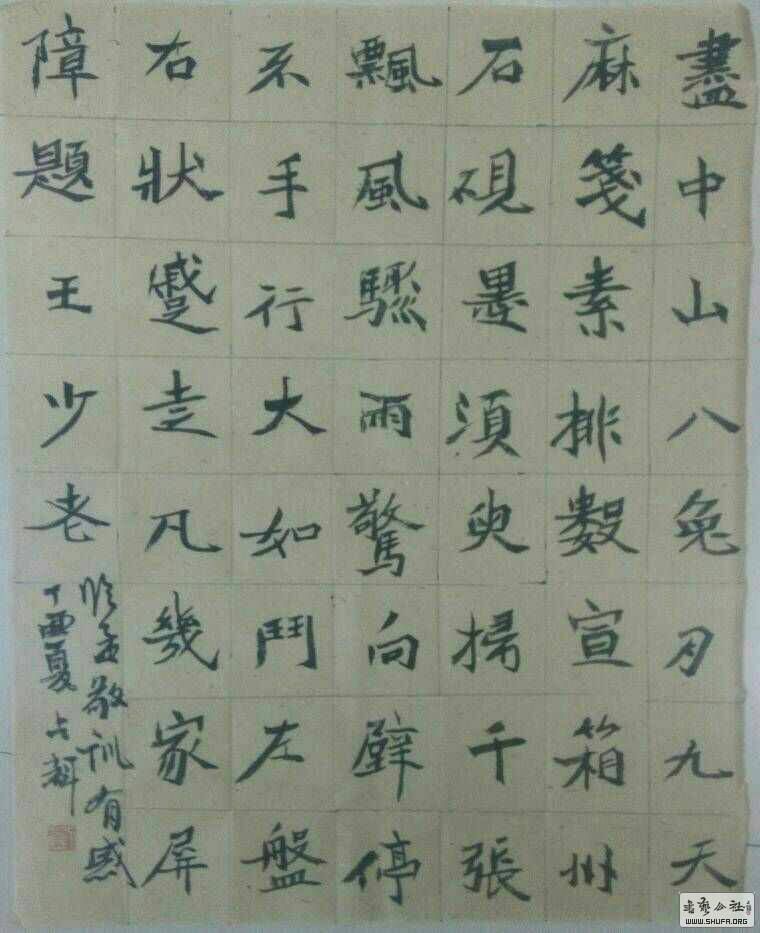 盡中山八兔刀九天
麻箋素排數宣箱州
石硯墨須臾掃千張
飄風驟雨驚向壁停
不手行大如鬥左盤
右狀蹙走凡幾家屏
障題王少老
临孟敬训有感
丁酉夏占
书艺公社
WWW.SHUFA.ORG